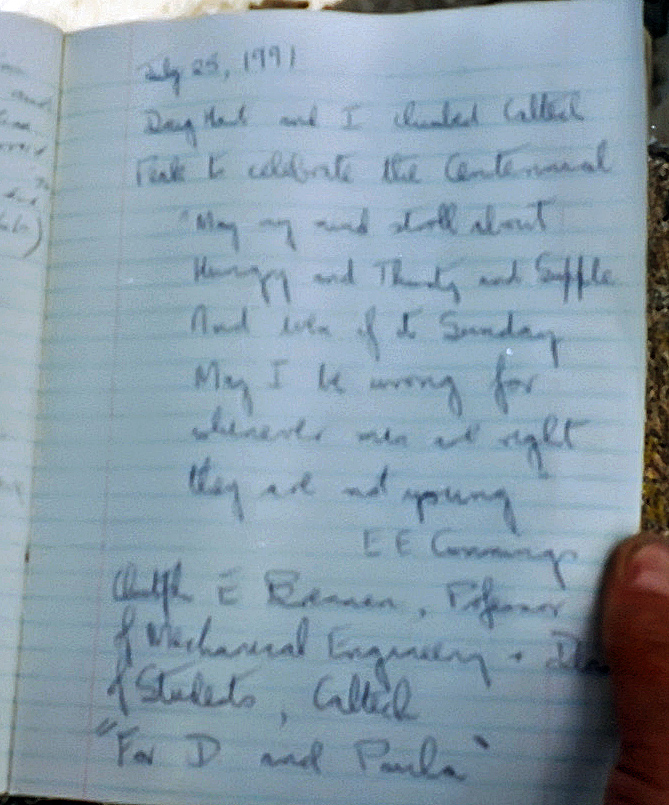 July 25, 1991
Doug Hart and I climbed Caltech
Peak to celebrate the Centennial
"May my mind stroll about
Hungry and Thirsty and Supple
And even if it Sunday
May I be wrong for
whenever men are right
they are not young
E E Cummings
E Brennen, Professor
of Mechanical Engineering +
of Students, Caltech
"For D and Paula"